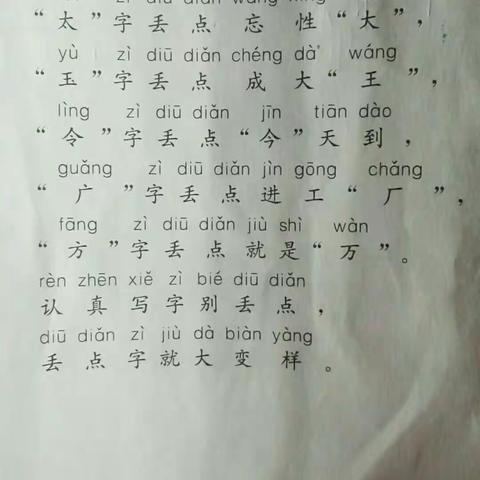 “太”字丢点忘性“大”，
yù zì diū diǎn chéng dà' wáng
“玉”字丢点成大“王”，
lìng zì diū diǎn jīn tiān dào
“令”字丢点“今”天到，
guǎng zì diū diǎn jìn gōng chǎng
“广”字丢点进工“厂”，
fāng zì diū diǎn jiù shì wàn
“方”字丢点就是“万”。
rèn zhēn xiě zì bié diū diǎn
认真写字别丢点，
diū diǎn zì jiù dà biàn yàng
丢点字就大变样。